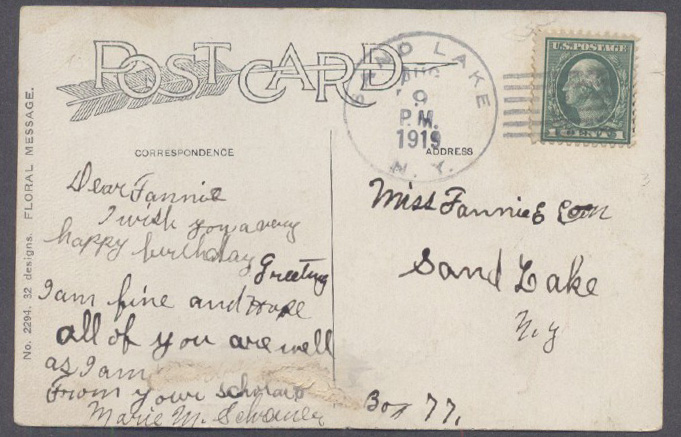 POST CARD
SAND LAKE
AUG
9
P.M.
1919
N. Y.
U.S. POSTAGE
1 CENT 1
CORRESPONDENCE
ADDRESS
No. 2294. 32 designs. FLORAL MESSAGE.
Dear Fannie
I wish you a very
happy birthday
Greeting
I am fine and Hope
all of you are well
as I am
From your
Marie M.
Miss Fannie E
Sand Lake
N.y
Box 77.